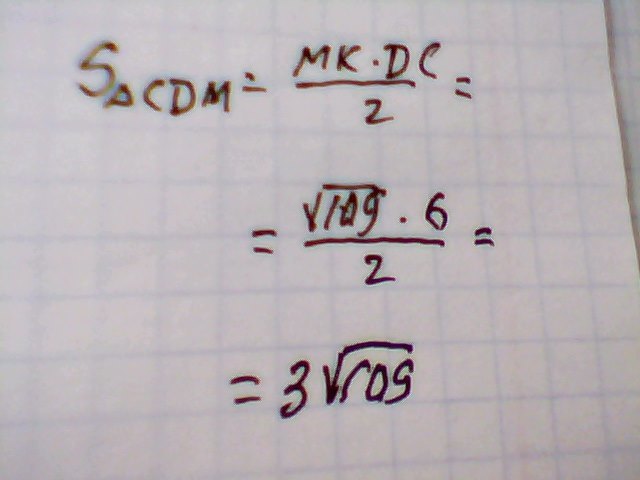 S△CDM = MK · DC / 2 =
= √109 · 6 / 2 =
= 3√109